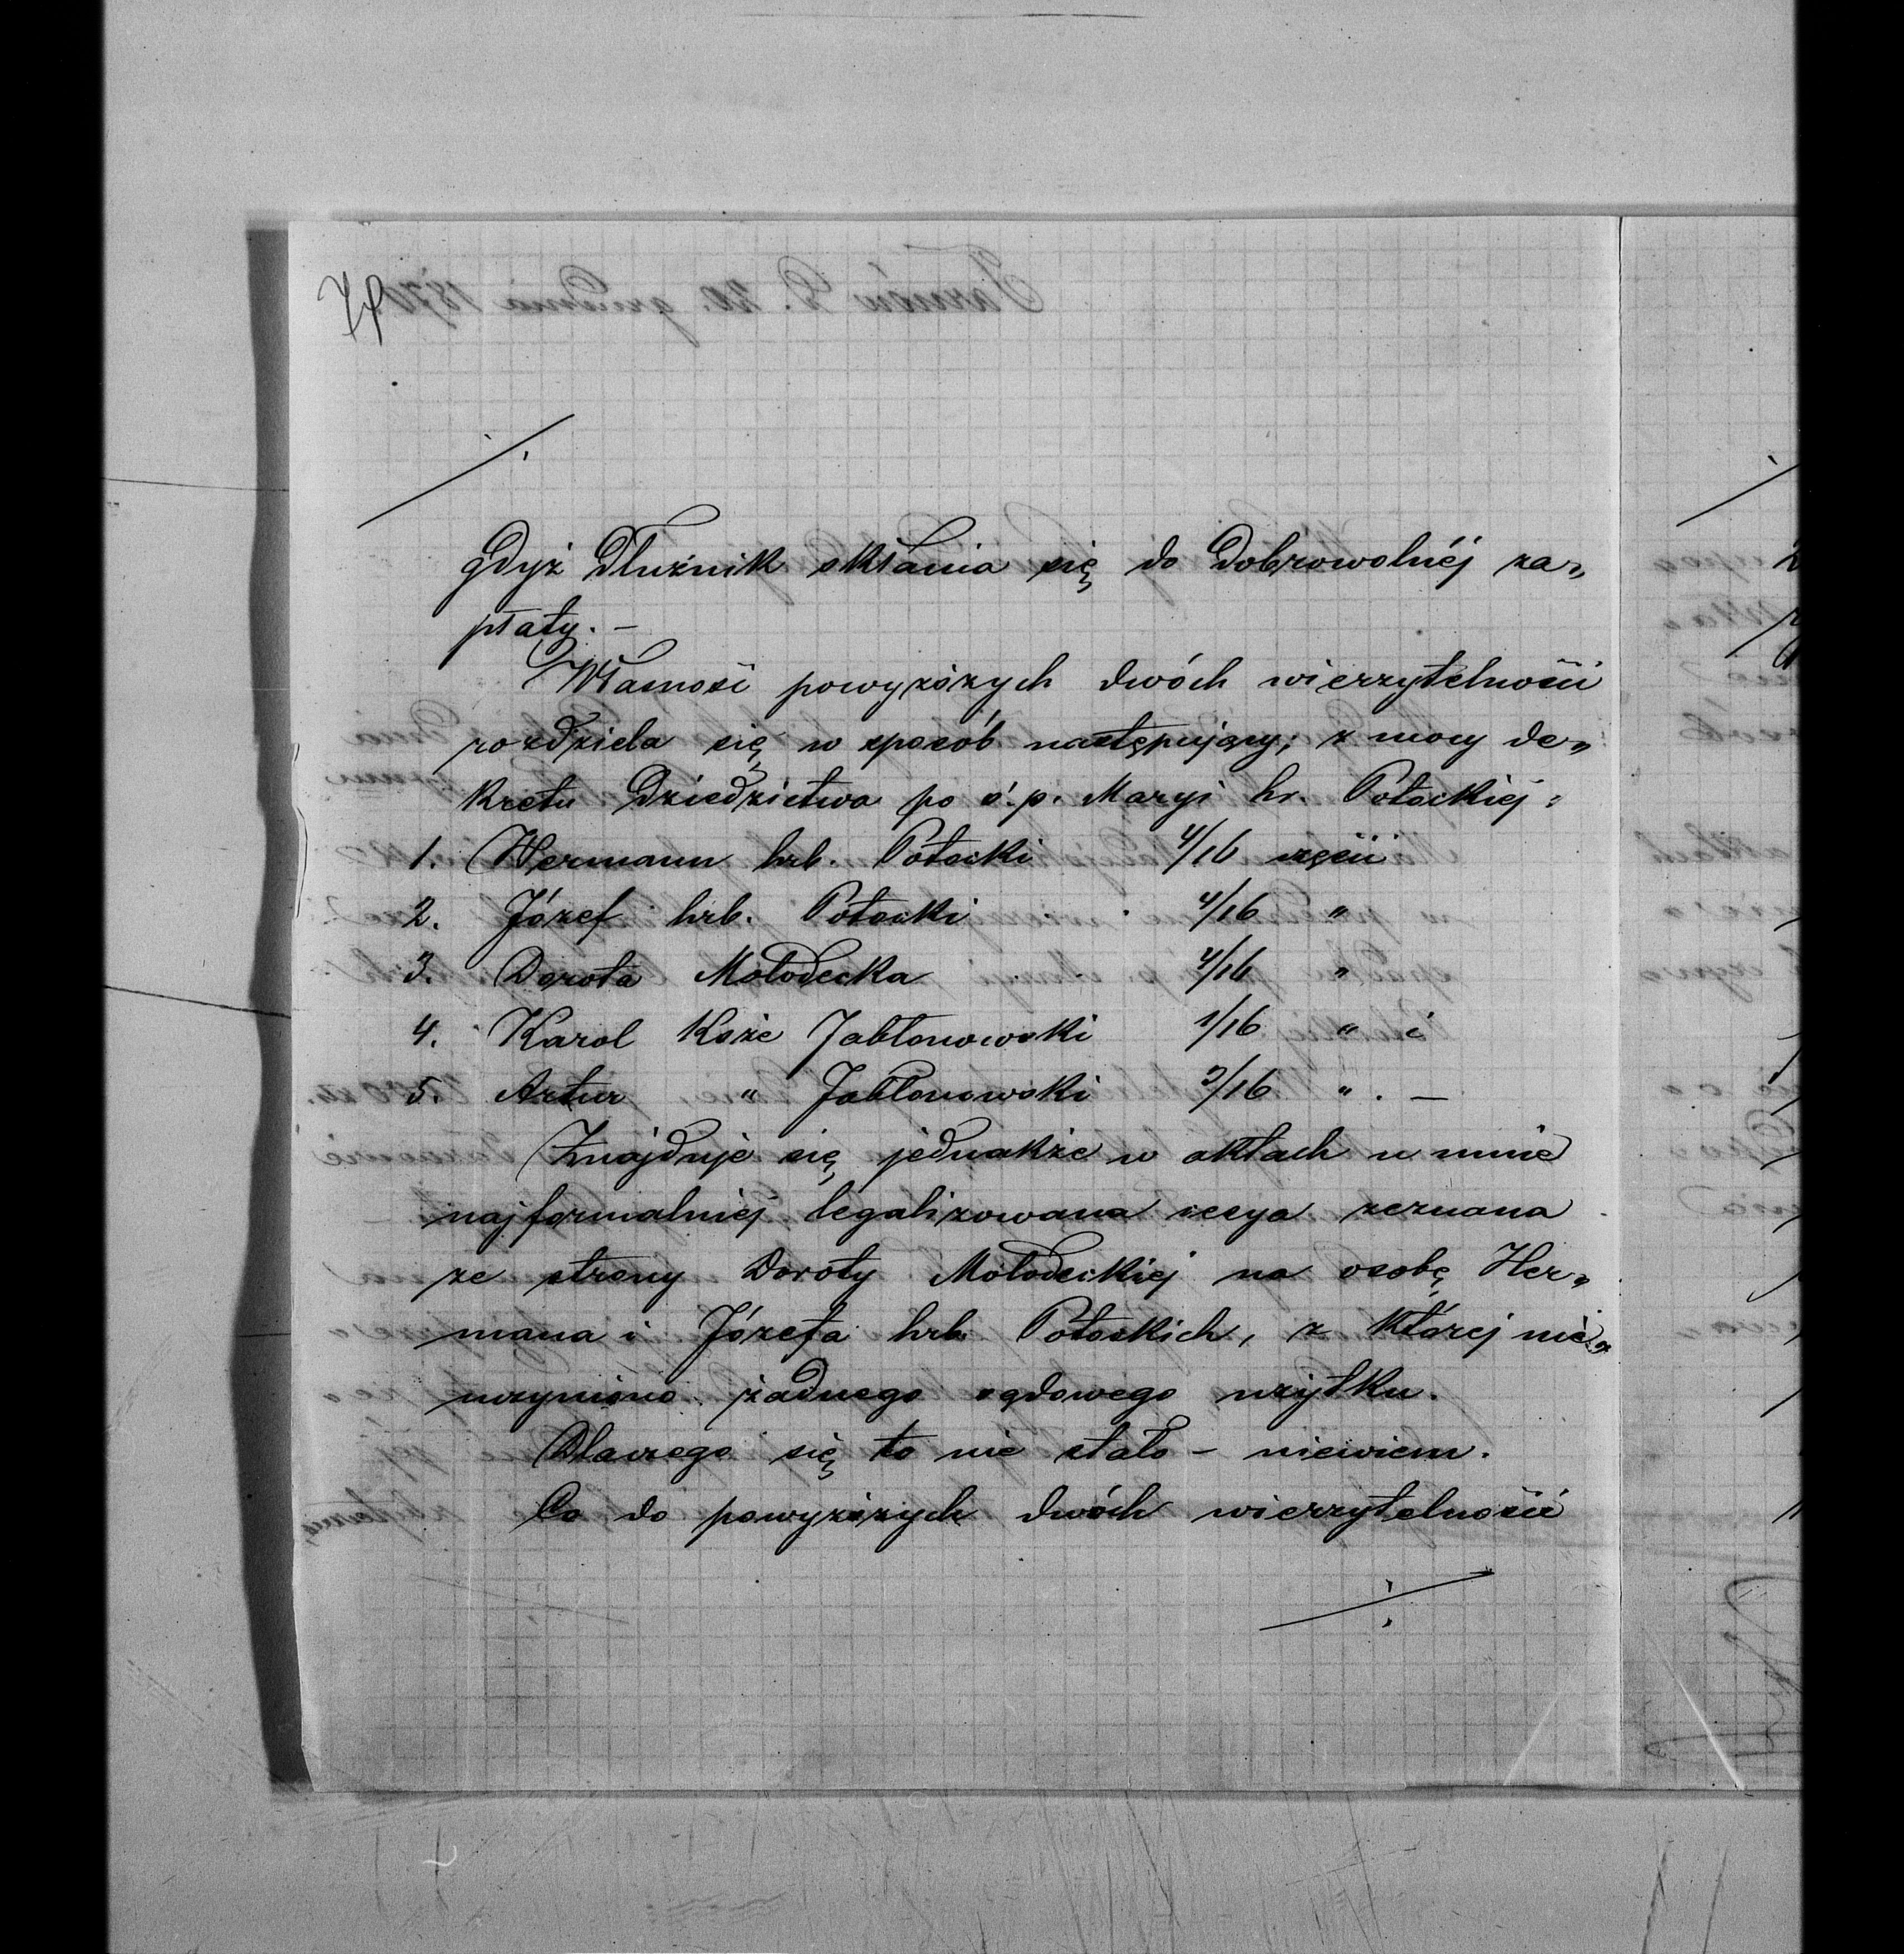 gdyż dłużnik skłania się do dobrowolnéj za„
płaty. –
Własność powyższych dwóch wierzytelności
rozdziela się w sposób następujący; z mocy de„
kretu dziedzictwa po ś.p. Maryi hr. Potockiéj:
1. Hermann hrb. Potocki 4/16 części
2. Józef hrb. Potocki 4/16 "
3. Dorota Mołodecka 4/16 "
4. Karol Kcże Jabłonowski 1/16 " i
5. Artur " Jabłonowski 3/16 ". –
Znajduje się jednakże w aktach u mnie
najformalniéj legalizowana cesya zeznana
ze strony Doroty Mołodeckiéj na osobę Her„
mana i Józefa hrb. Potockich, z któréj nie„
uczyniono żadnego sądowego użytku.
Dlaczego się to nie stało – niewiem.
Co do powyższych dwóch wierzytelności
./.